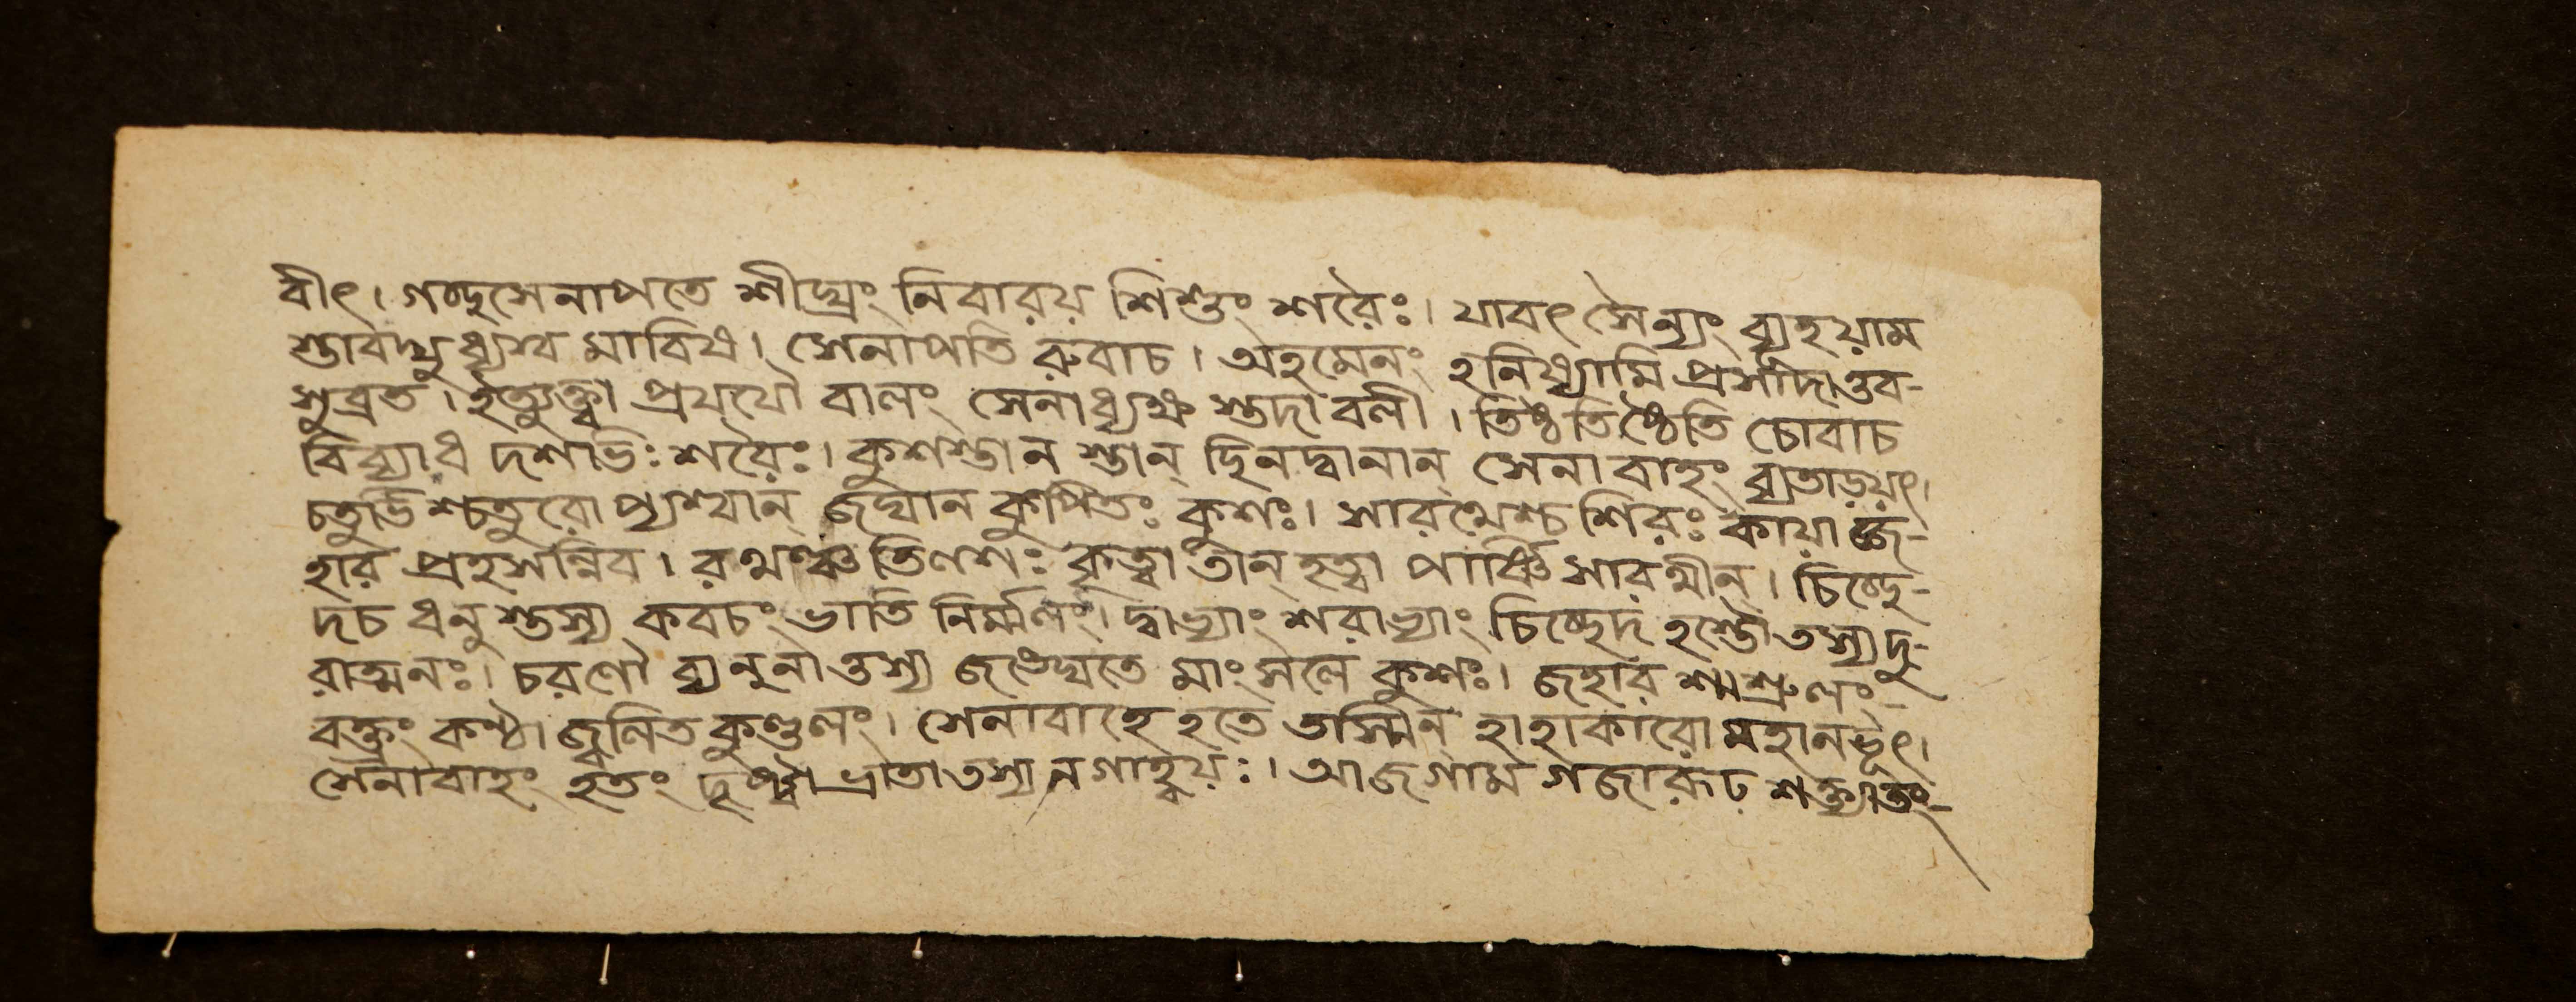 বীৎ। গচ্ছসেনাপতে শীঘ্রং নিবারয় শিশুং শরৈঃ। যাবৎ সৈন্যং ব্যূহয়াম
স্তাবদ্যুধ্যস্ব মাবিথ। সেনাপতি রুবাচ। অহমেনং হনিষ্যামি প্রসাদাত্তব-
শুব্রত। ইত্যুক্ত্বা প্রযযৌ বালং সেনাধ্যক্ষ স্তদা বলী। তিষ্ঠতিষ্ঠেতি চোবাচ
বিব্যাধ দশভিঃ শরৈঃ। কুশস্তান স্তান্ ছিনদ্বানান্ সেনাবাহং ব্যতাড়য়ৎ।
চতুর্ভিশ্চতুরো প্যশ্বান্ জঘান কুপিতঃ কুশঃ। সারথেশ্চ শিরঃ কায়া জ্জ-
হার প্রহসন্নিব। রথঞ্চ তিলশঃ কৃত্বা তান্ হত্বা পার্ষ্ণি সারথীন্। চিচ্ছে-
দচ ধনু স্তস্য কবচং ভাতি নির্ম্মলং। দ্বাভ্যাং শরাভ্যাং চিচ্ছেদ হস্তৌ তস্য দু-
রাত্মনঃ। চরণৌ ব্যনুনাত্তস্য জঙ্ঘেতে মাংসলে কুশঃ। জহার শ্মশ্রুলং-
বক্ত্রং কণ্ঠা জ্জ্বলিত কুণ্ডলং। সেনাবাহে হতে তস্মিন্ হাহাকারো মহানভূৎ।
সেনাবাহং হতং দৃষ্ট্বা ভ্রাতা তস্য নগাহ্বয়ঃ। আজগাম গজারূঢ় শক্ত্যাতং-